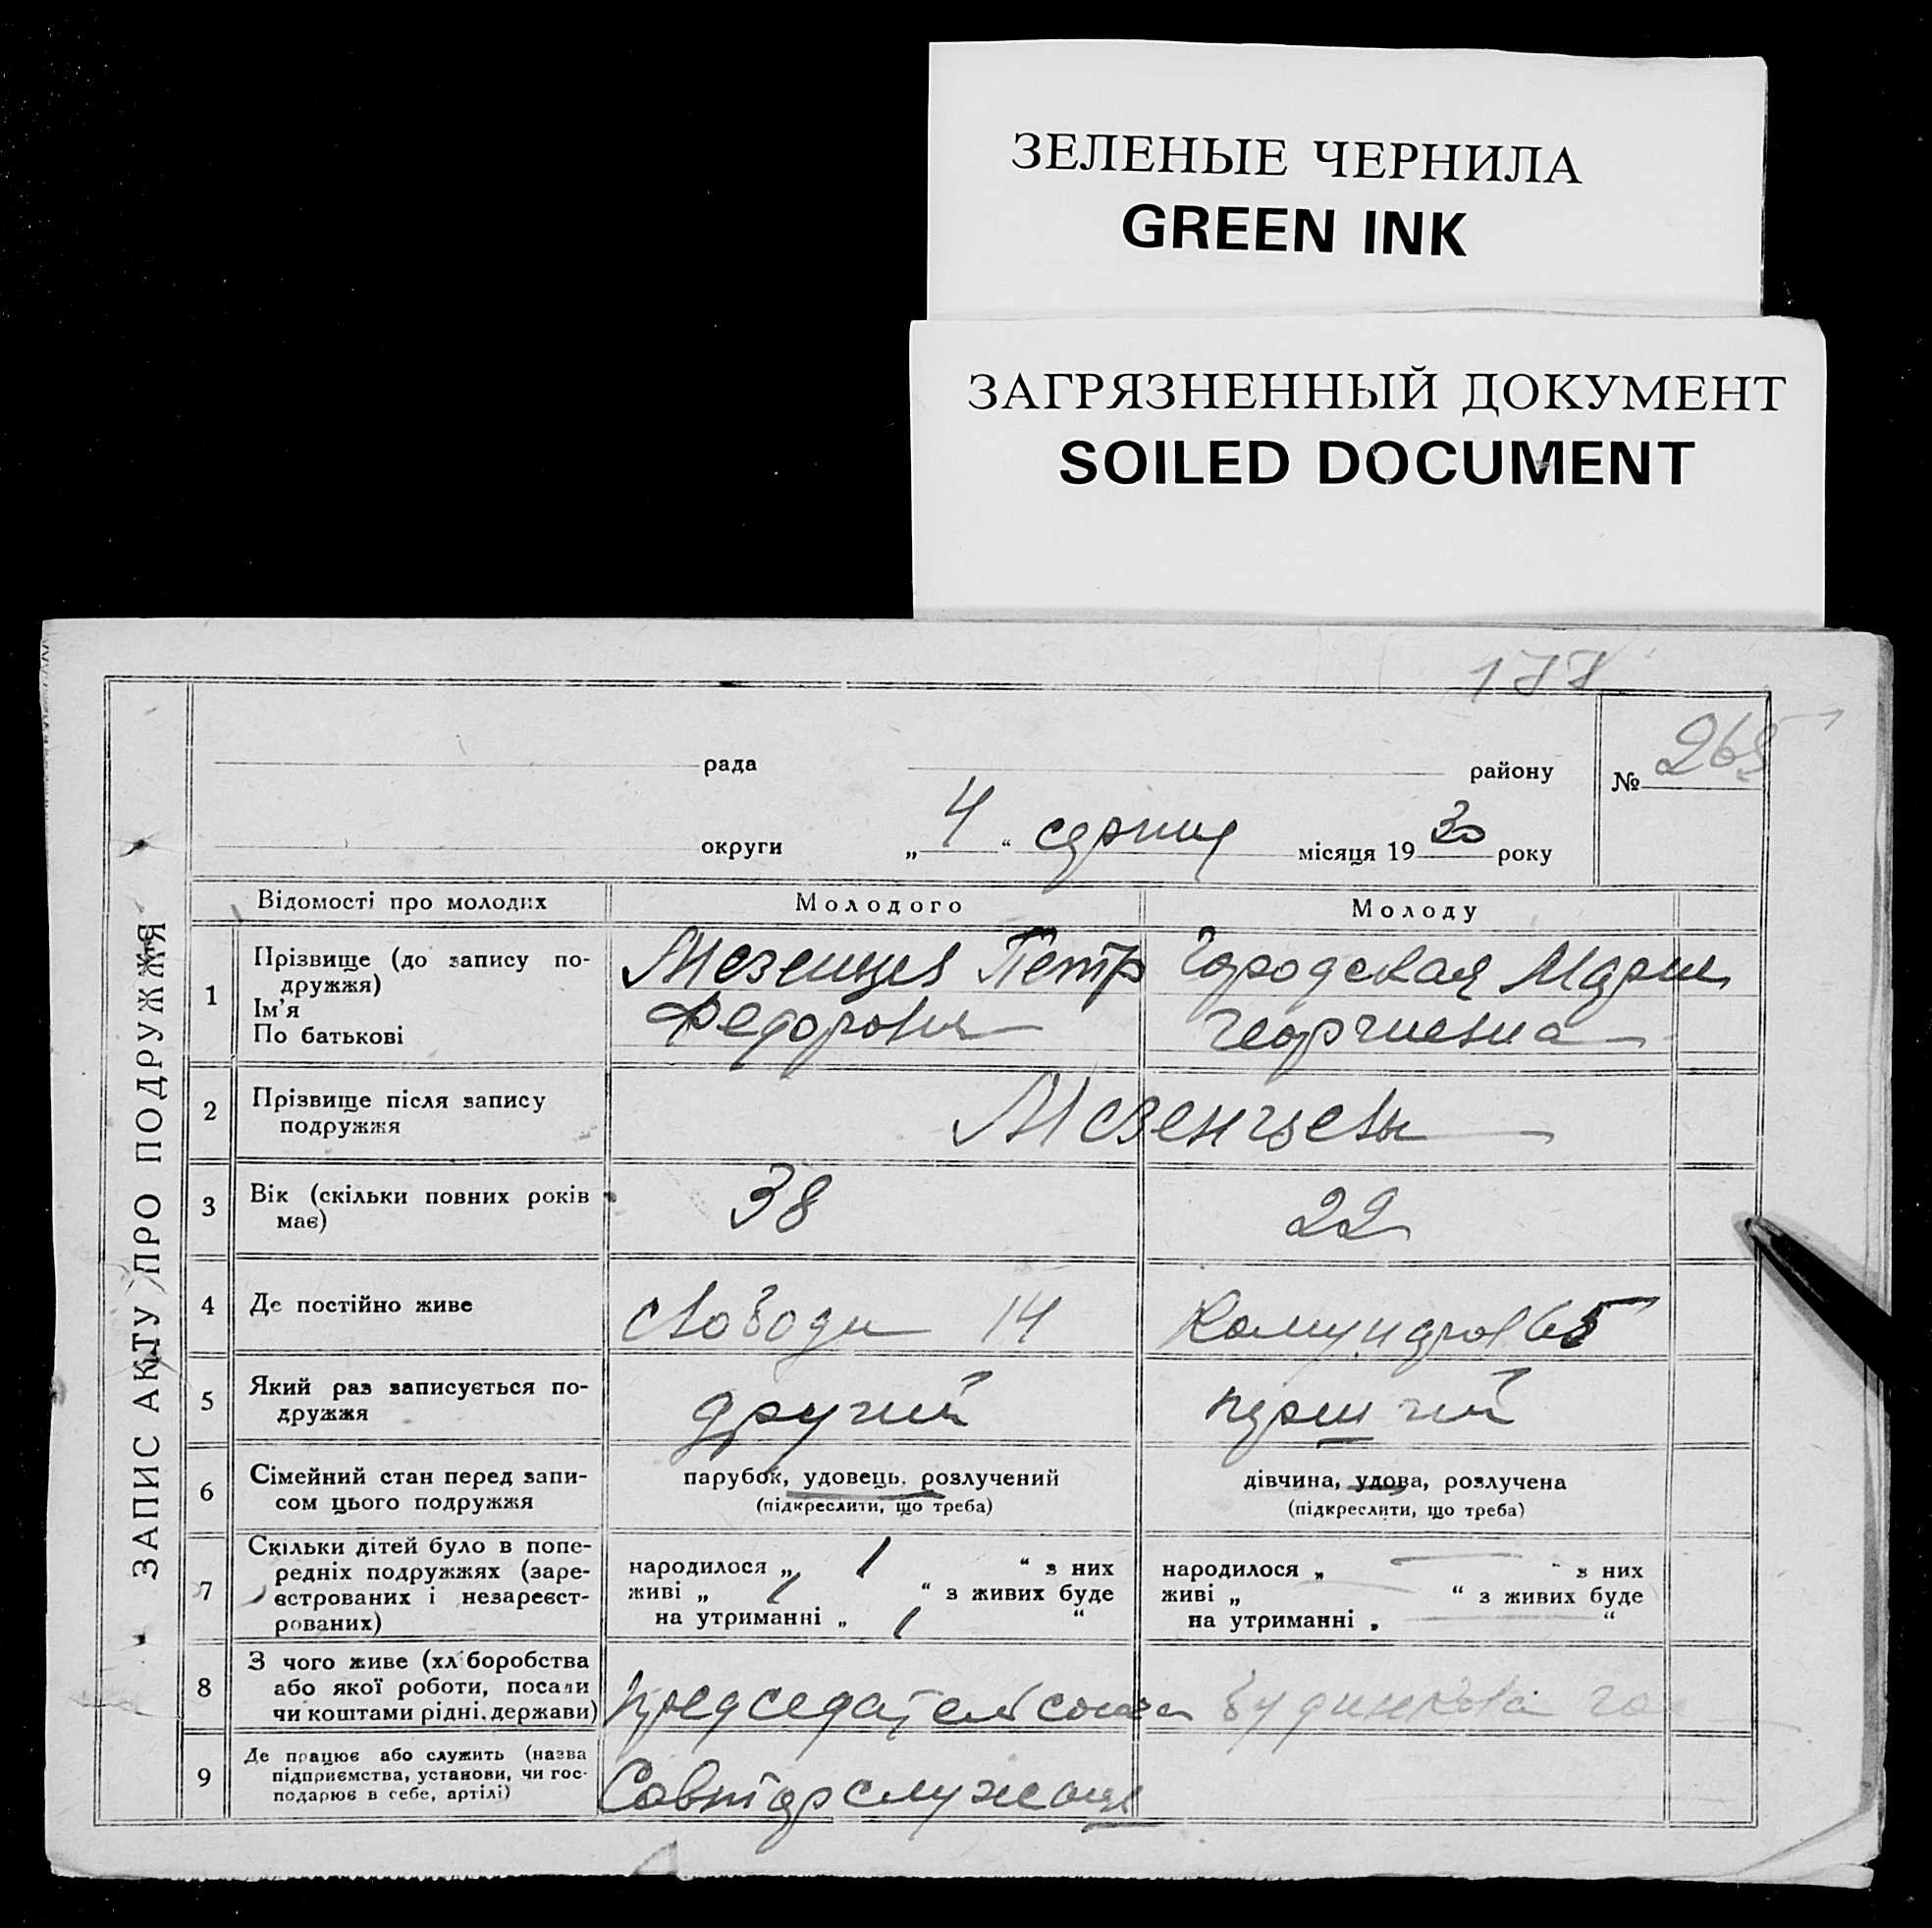 ЗЕЛЕНЫЕ ЧЕРНИЛА
GREEN INK
ЗАГРЯЗНЕННЫЙ ДОКУМЕНТ
SOILED DOCUMENT
177
ЗАПИС АКТУ ПРО ПОДРУЖЖЯ
рада району № 265
округи „ 4 “ серпня місяця 19 30 року
Відомості про молодих Молодого Молоду
1 Прізвище (до запису по-
дружжя)
Ім'я
По батькові
Мезенцев Петр
Федорович
Городская Мария
Георгиевна
2 Прізвище після запису
подружжя
Мезенцевы
3 Вік (скільки повних років
має)
38 22
4 Де постійно живе
Свободи 14 Комунаров 65
5 Який раз записується по-
дружжя
другий перший
6 Сімейний стан перед запи-
сом цього подружжя
парубок, удовець, розлучений
(підкреслити, що треба)
дівчина, удова, розлучена
(підкреслити, що треба)
7 Скільки дітей було в попе-
редніх подружжях (заре-
єстрованих і незареєст-
рованих)
народилося „ 1 “ з них
живі „ 1 “ з живих буде
на утриманні „ 1 “
народилося „ — “ з них
живі „ “ з живих буде
на утриманні „ — “
8 З чого живе (хліборобства
або якої роботи, посади
чи коштами рідні, держави)
председатель союза
9 Де працює або служить (назва
підприємства, установи, чи гос-
подарює в себе, артілі)
Совторгслужащ